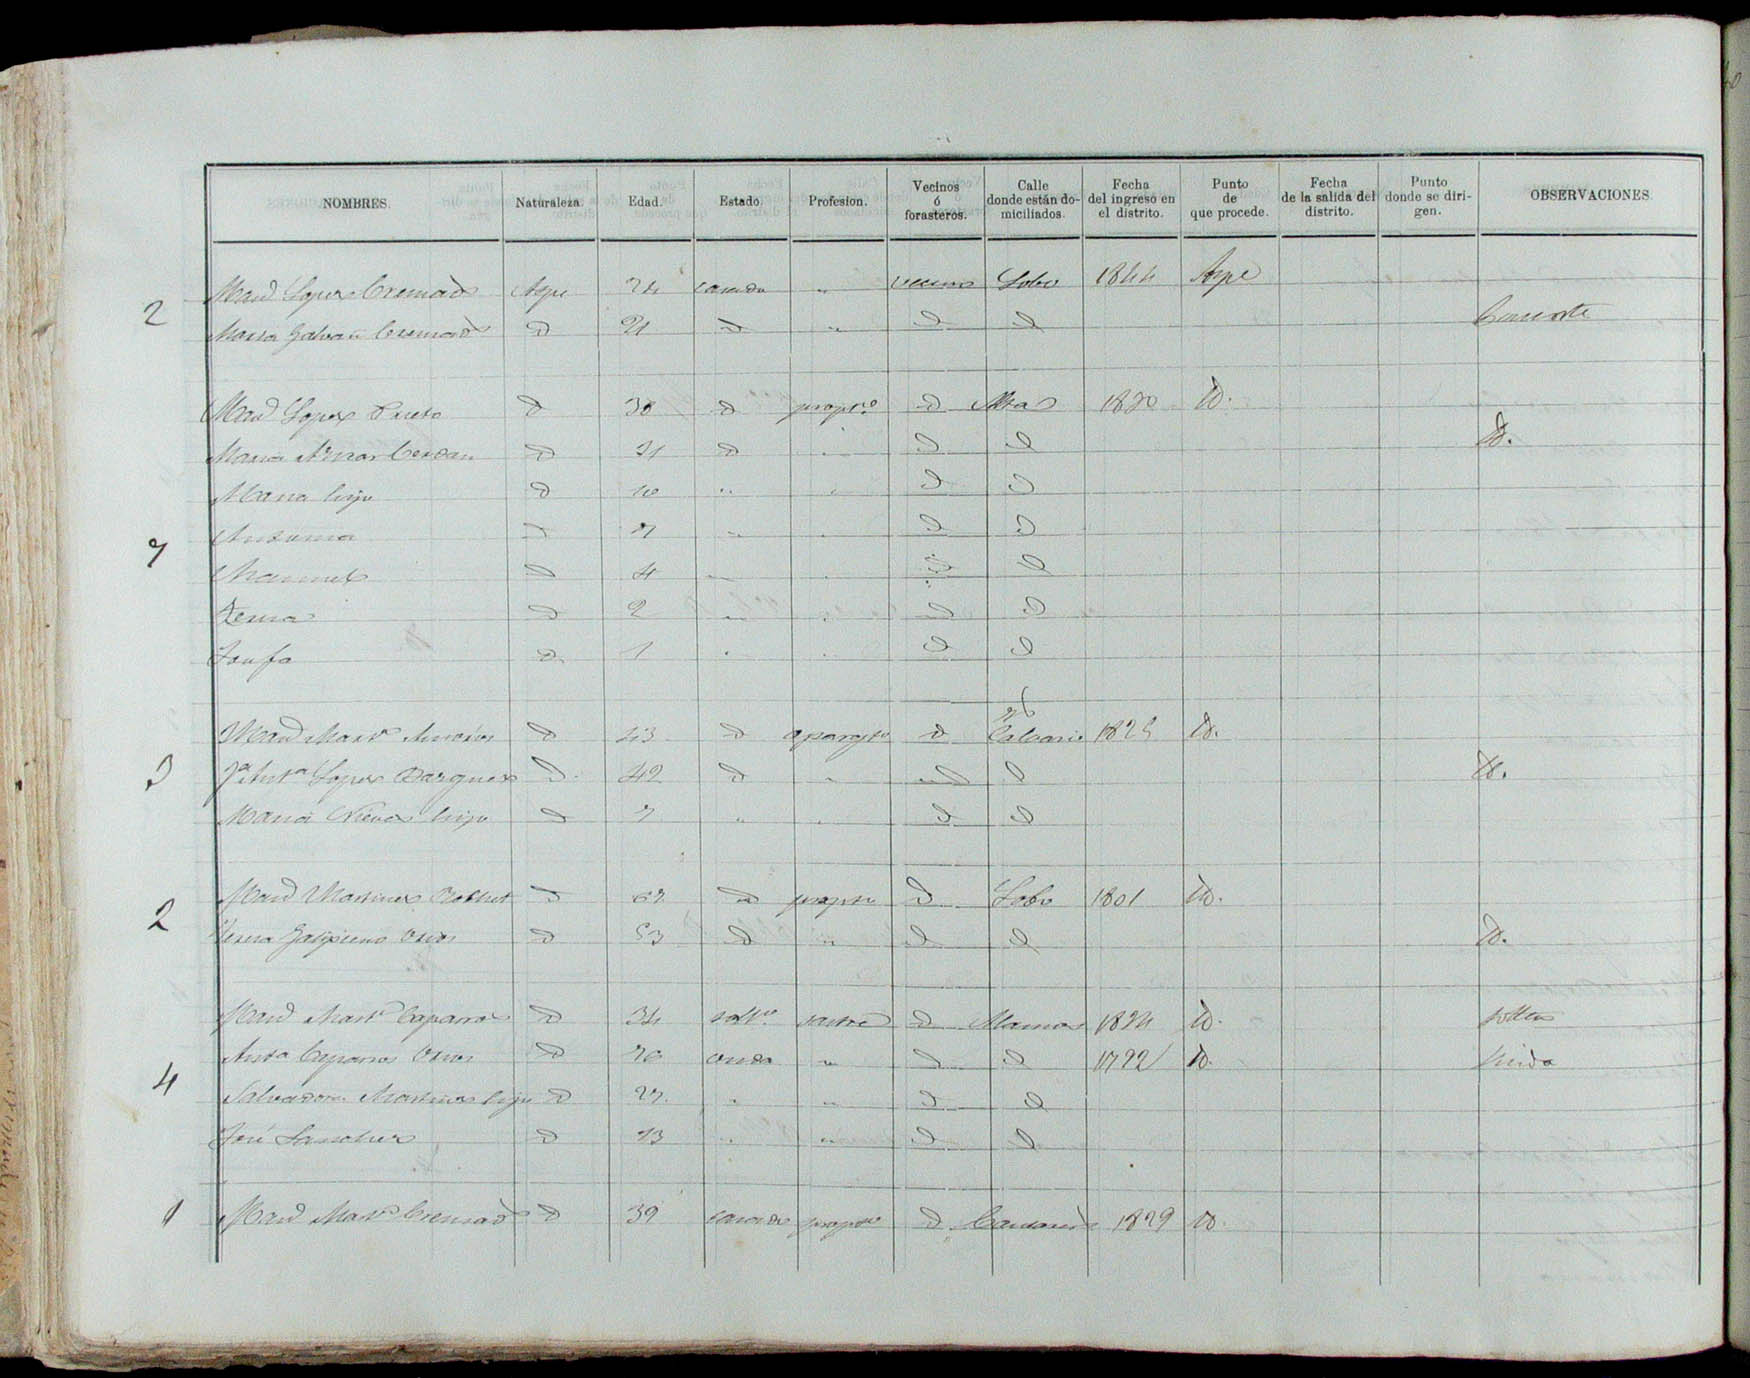 NOMBRES. Naturaleza. Edad. Estado. Profesion. Vecinos ó forasteros. Calle donde están domiciliados. Fecha del ingreso en el distrito. Punto de que procede. Fecha de la salida del distrito. Punto donde se dirigen. OBSERVACIONES.
2 Man.l Lopez Cremad.s Aspe 24 casado " vecino Lobo 1844 Aspe
Maria Galvañ Cremad.s D 21 D " D D Consorte
Man.l Lopez Prieto D 30 D propt.o D Alta 1820 D.
Maria Cerdan D 31 D " D D D.
Maria hija D 10 " " D D
7 Antonia D 7 " " D D
Manuel D 4 " " D D
Teresa D 2 " " D D
Josefa D 1 " " D D
Man.l Mart.z D 43 D D Calvario 1825 D.
3 Ant.a Lopez D 42 D " D D D.
Maria Nieves hija D 7 " " D D
Man.l Martinez D 67 D propt.o D Lobo 1801 D.
2 Teresa D 53 D " D D D.
Man.l Mart.z Caparros D 34 solt.o sastre D 1824 D. soltero
Ant.a Caparros D 76 viuda " D D 1722 D. viuda
4 Salvadora Martinez hija D 27 " " D D
José Sanchez D 13 " " D D
1 Man.l Mart.z Cremad.s D 39 casado propt.o D 1829 D.